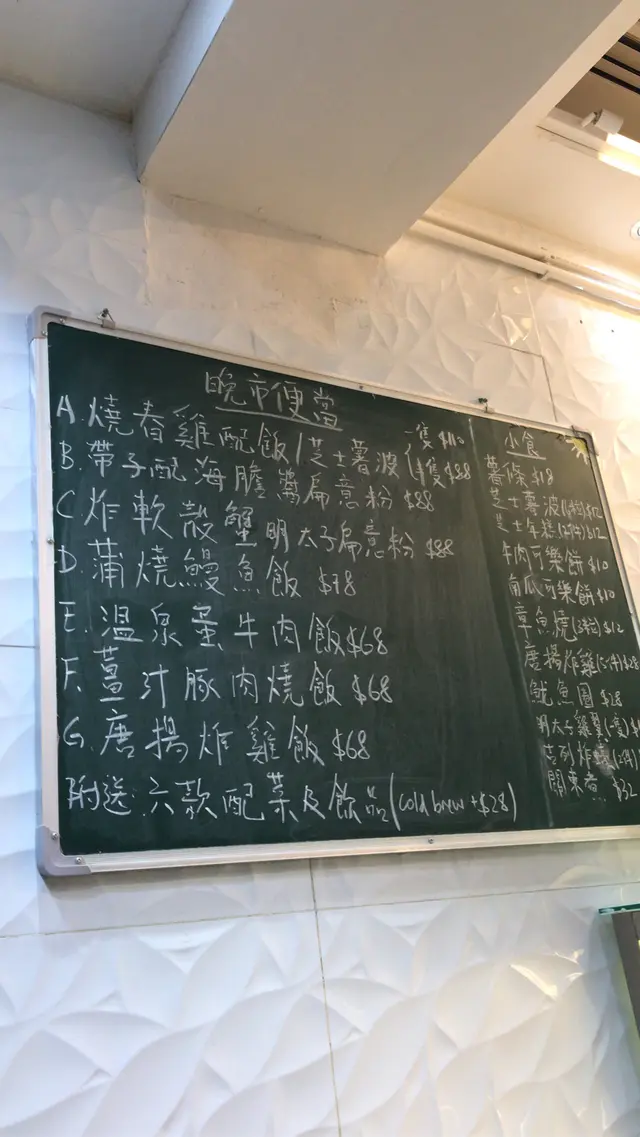 晚市便當
A.燒春雞配飯/芝士薯波 一隻 $110
半隻 $88
B.帶子配海膽醬扁意粉 $88
C 炸軟殼蟹明太子扁意粉 $88
D.蒲燒鰻魚飯 $78
E.溫泉蛋牛肉飯 $68
F.薑汁豚肉燒飯 $68
G.唐揚炸雞飯 $68
附送:六款配菜及飲品(cold brew +$28)
小食
薯條 $18
芝士薯波 $12
芝士年糕(2件) $12
牛肉可樂餅 $10
南瓜可樂餅 $10
章魚燒(3粒) $12
唐揚炸雞(5件) $28
魷魚圈 $28
明太子雞翼(1隻)
吉列炸蠔(2件)
關東煮... $32